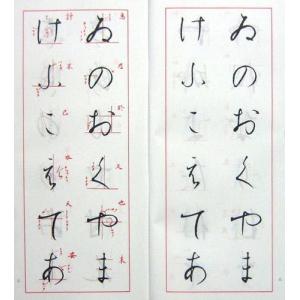 ゐのおくやま
けふこえてあ
ゐのおくやま
けふこえてあ